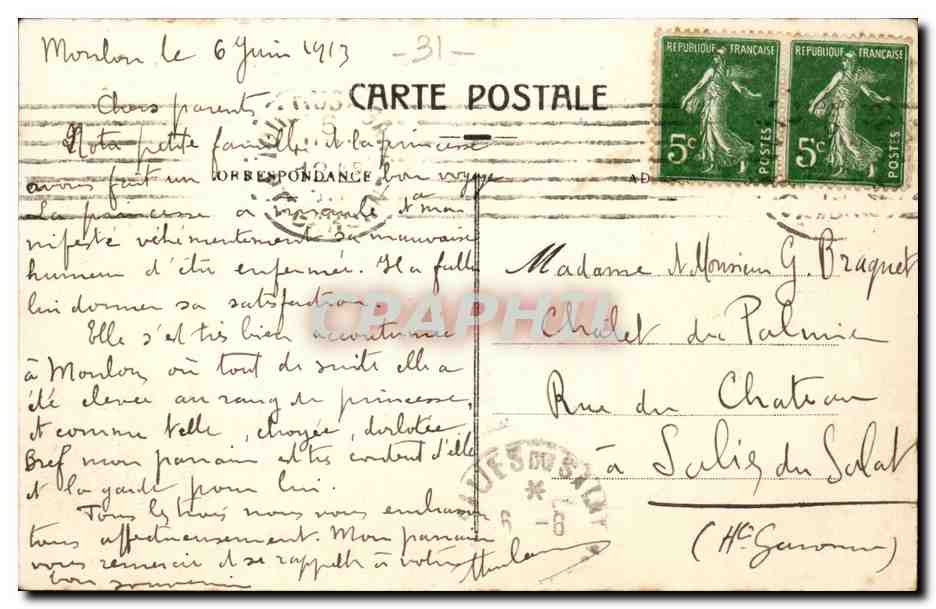 Moulon le 6 Juin 1913
-31-
CARTE POSTALE
REPUBLIQUE FRANÇAISE
5c POSTES
REPUBLIQUE FRANÇAISE
5c POSTES
CORRESPONDANCE
AD
Chers parents
Nota petite famille et la princesse
avons fait un bon voyage
La princesse a et a ma-
nifesté véhémentement sa mauvaise
humeur d'être enfermée. Il a fallu
lui donner sa satisfaction.
Elle s'est très bien accoutumée
à Moulon où tout de suite elle a
été élevée au rang de princesse,
et comme telle, choyée, dorlotée
Bref mon parrain est très content d'elle
et la garde pour lui.
Tous les trois nous vous embrassons
tous affectueusement. Mon parrain
vous remercie et se rappelle à votre
bon souvenir
Madame et Monsieur G. Braquet
Châlet du Palmier
Rue du Chateau
à Salies du Salat
(Hte Garonne)
CPAPHIL
SALIES DU SALAT
6 -6